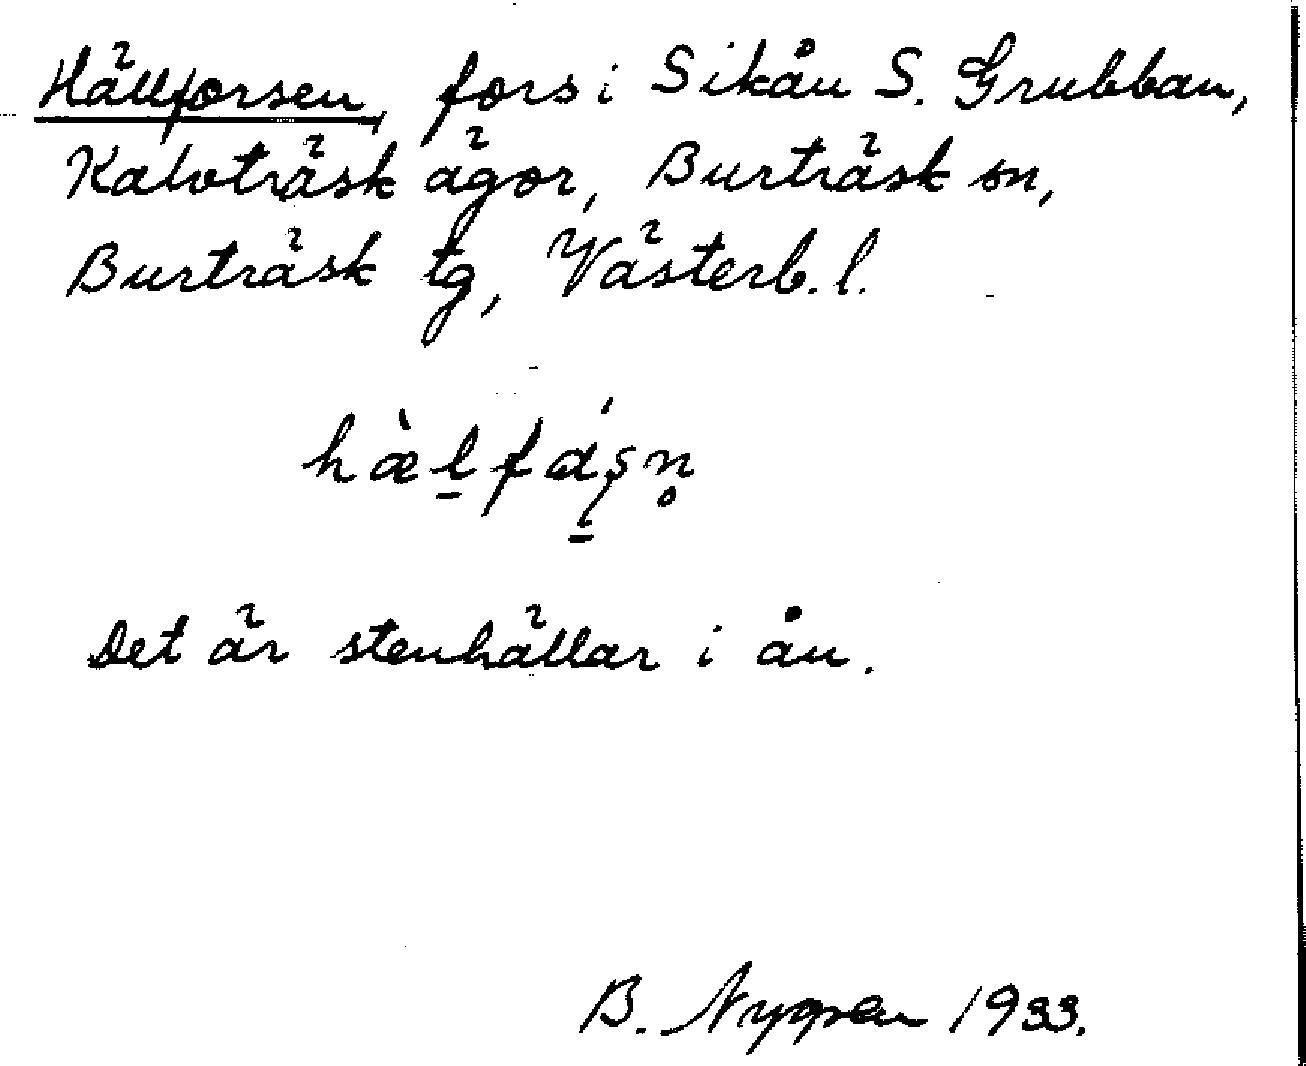 Hällforsen, fors i Sikån S. Grubban,
Kalvträsk ägor, Burträsk sn,
Burträsk tg, Västerb. l.
hæ̀l̠fáʂn̥
Det är stenhällar i ån.
B. Nygren 1933.